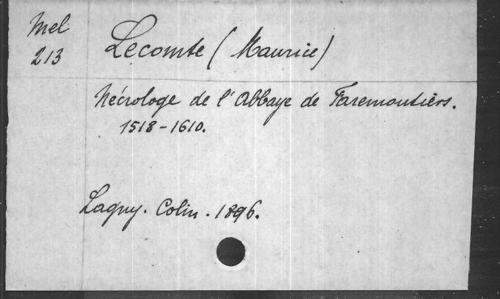 Mel
213
Lecomte (Maurice)
Nécrologe de l'Abbaye de Faremoutiers.
1518-1610.
Lagny. Colin. 1896.